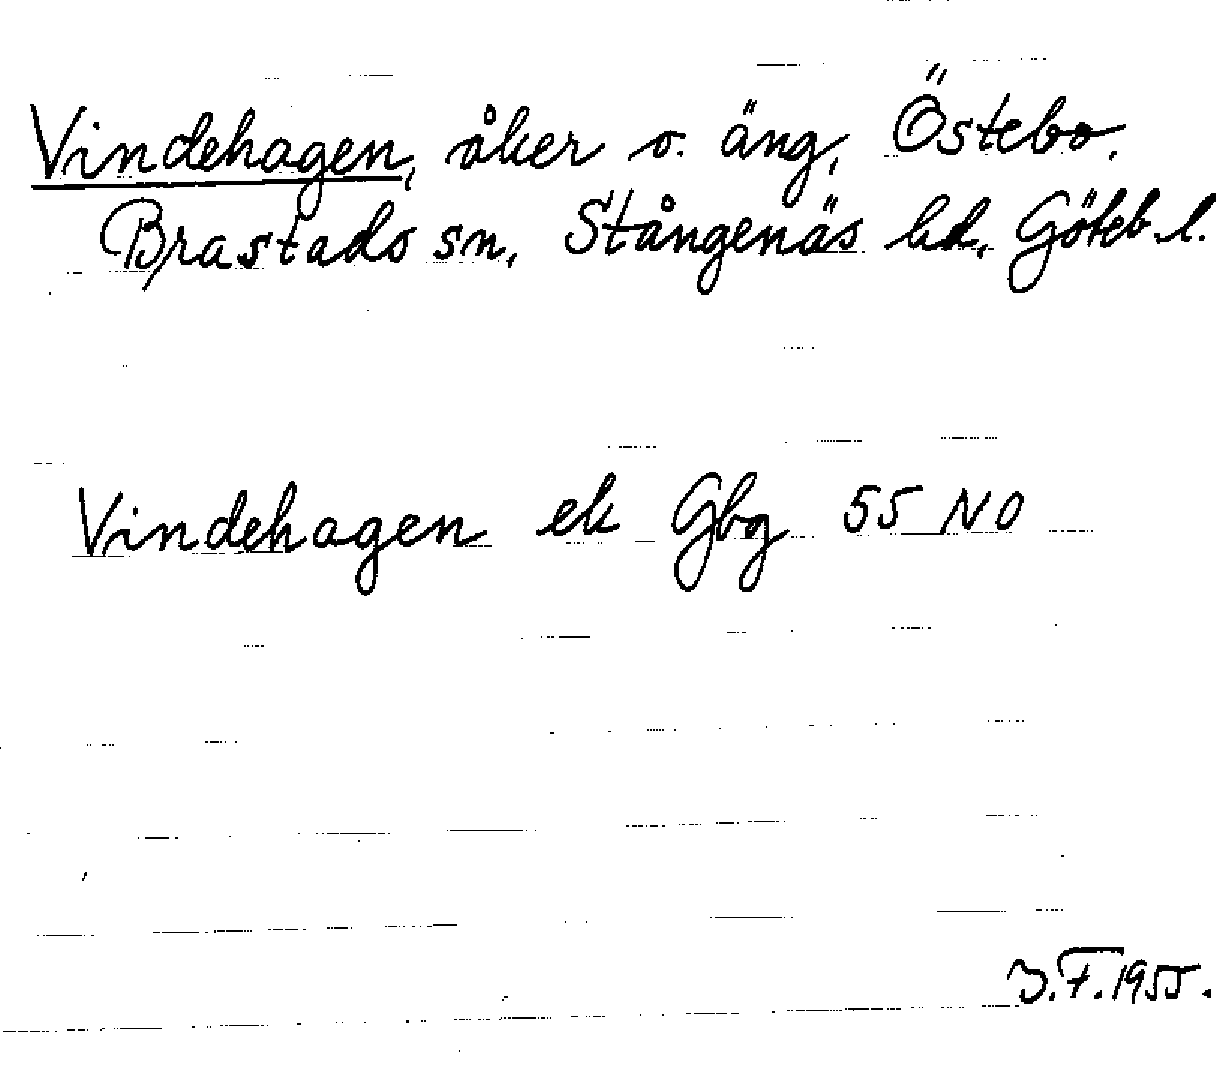 Vindehagen, åker o. äng, Östebo.
Brastads sn, Stångenäs hd, Göteb l.
Vindehagen ek Gbg 55 NO
J.F. 1955.